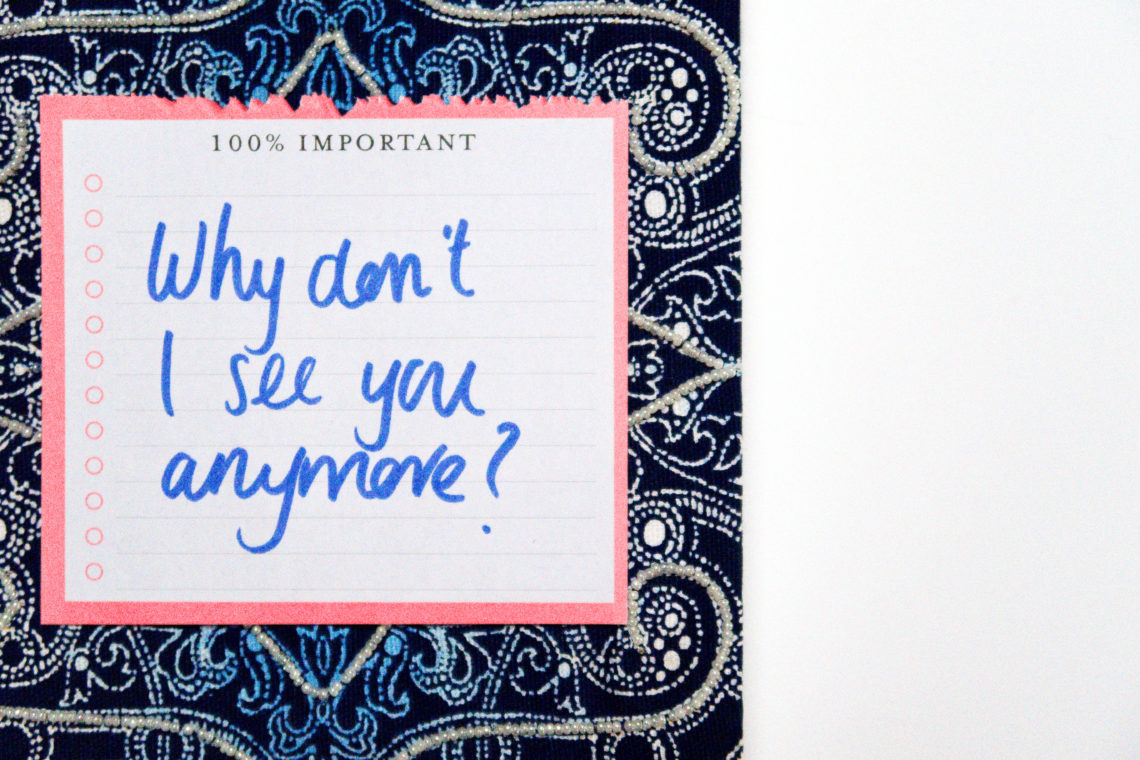 100% IMPORTANT
Why don't
I see you
anymore?